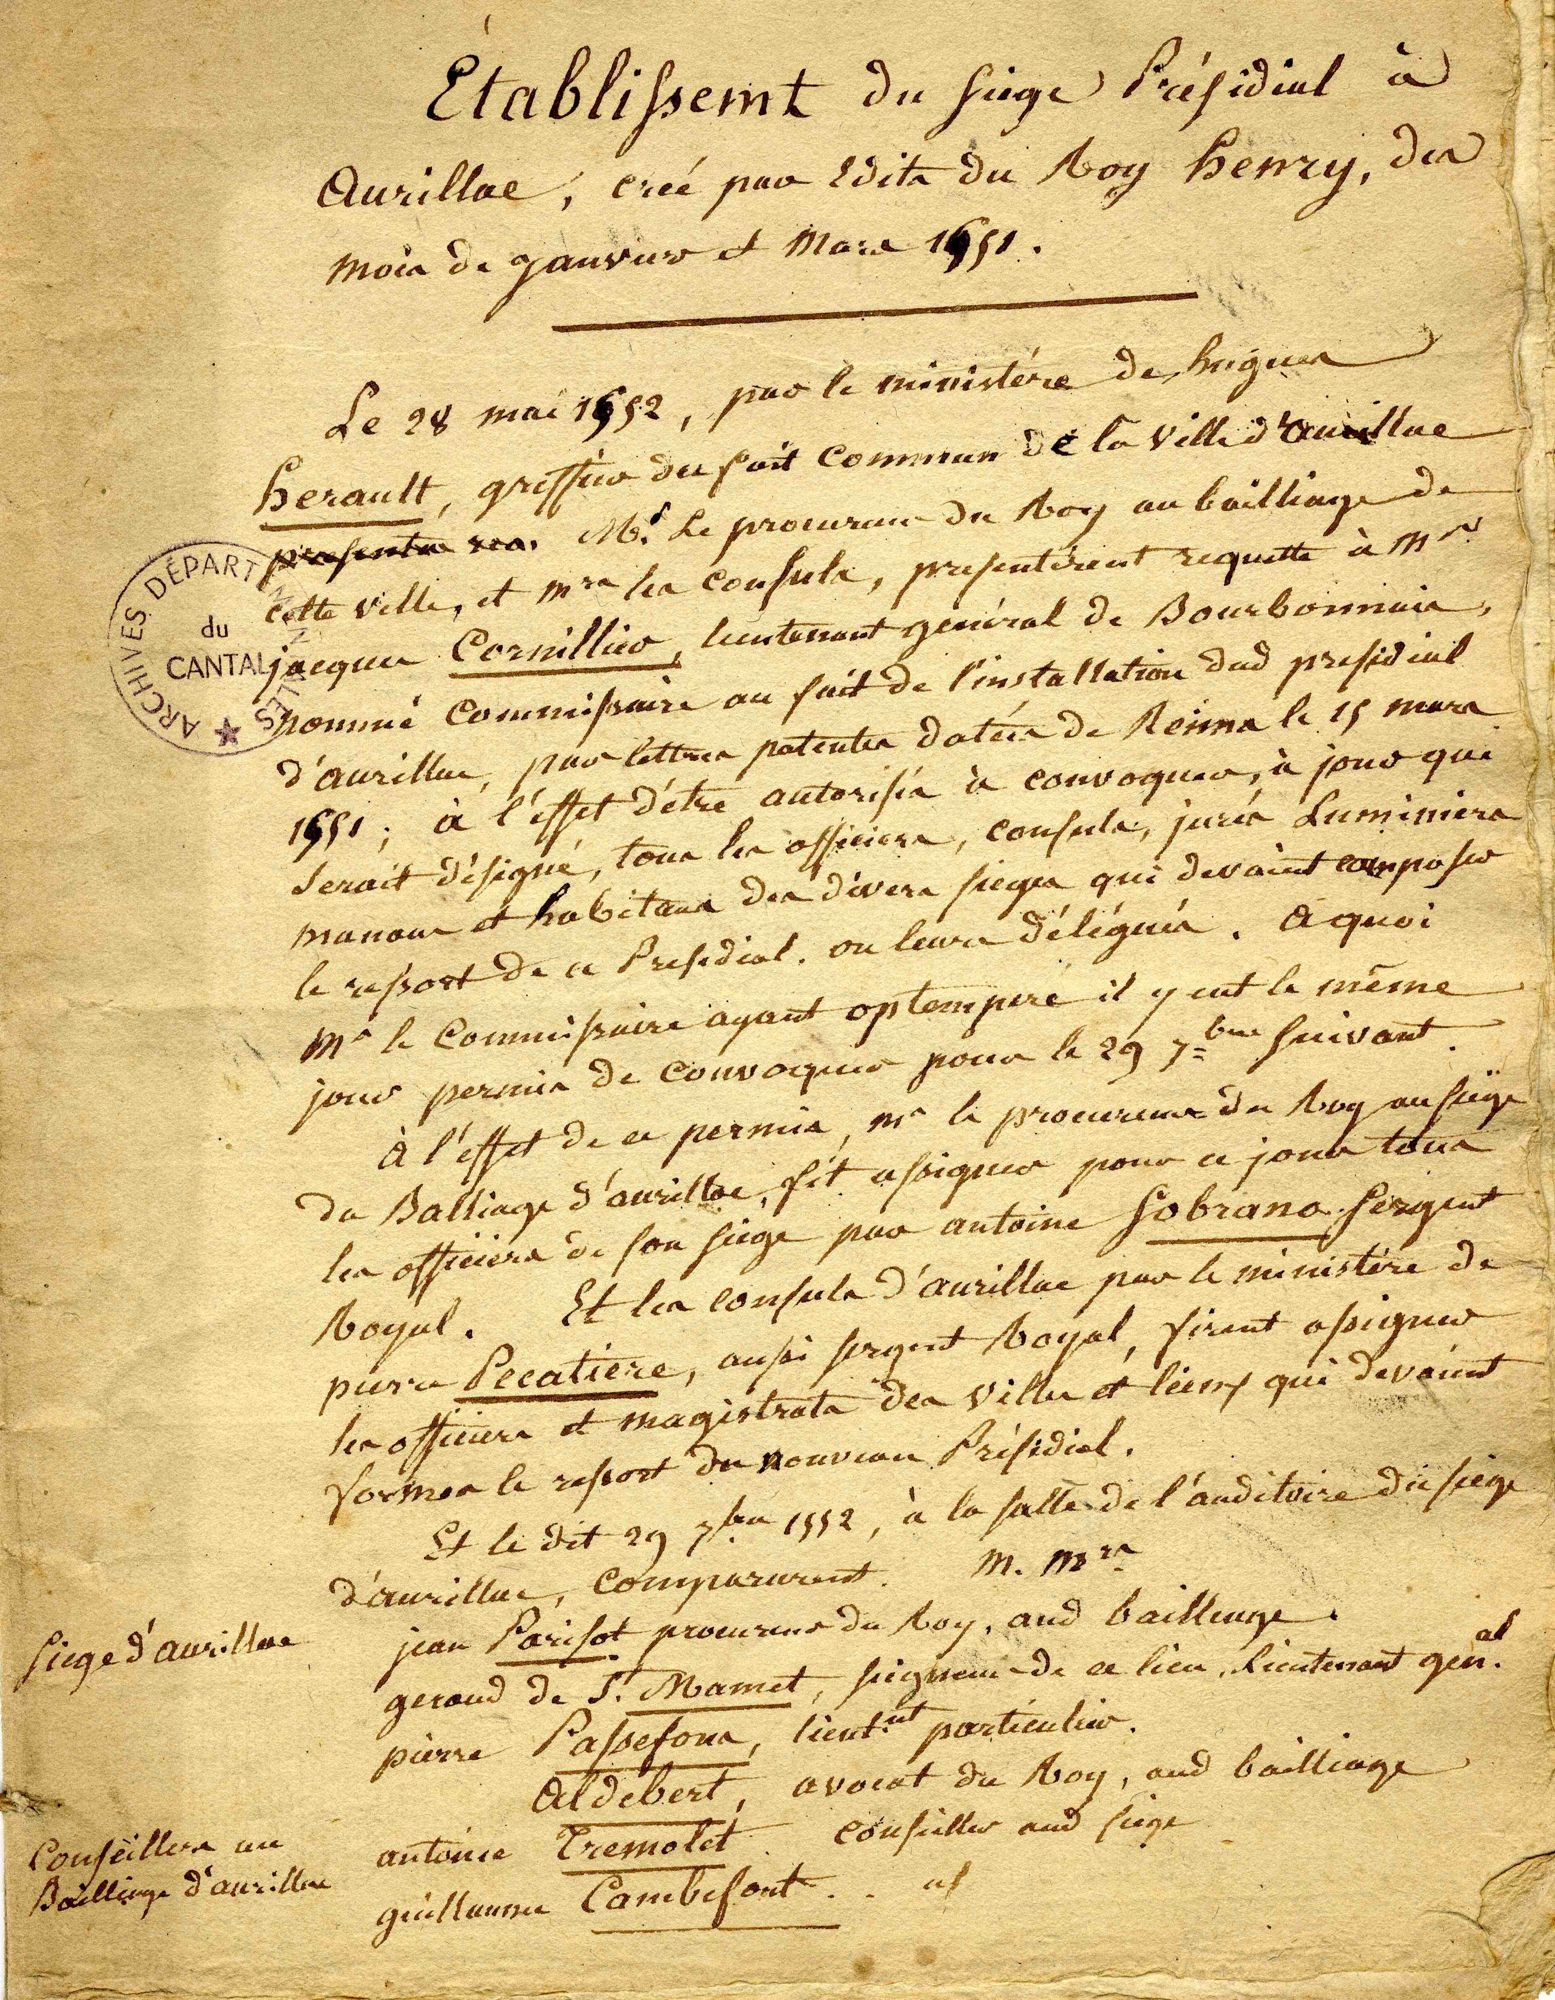 Etablissemt du siege Présidial à
Aurillac, créé par Edits du Roy henry, des
mois de Janvier et Mars 1551.
Le 28 mai 1552, par le ministére de hugues
herault, greffier du fait commun de la ville d'aurillac
Mr. Le procureur du Roy au bailliage de
cette ville, et mrs les consuls, presentérent requette à Mre
jacques Cornillier, lieutenant général de Bourbonnais,
nommé Commissaire au fait de l'installation dud presidial
d'aurillac, par lettres patentes datées de Reims le 15 mars
1551; à l'effet d'être autorisés à convoquer, à jour qui
serait désigné, tous les officiers, consuls, jurés Luminiers
manans et habitans des divers sieges qui devaint composer
le ressort de ce Presidial. ou leurs délégués. A quoi
Mr le Commissaire ayant optemperé il y eut le même
jour permis de convoquer pour le 29 7=bre suivant.
A l'effet de ce permis, mr le procureur du Roy au siége
du Balliage d'aurillac, fit assigner pour ce jour tous
les officiers de son siége par antoine Sobrano Sergent
Royal. Et les consuls d'aurillac par le ministére de
pierre Pecatiere, aussi sergent Royal, firent assigner
les officiers et magistrats des villes et lieux qui devaint
former le ressort du nouveau Présidial.
Et le dit 29 7bre 1552, à la salle de l'auditoire du siege
d'aurillac, comparurent. M. Mrs
Siege d'aurillac
jean Parisot procureur du Roy, aud bailliage.
geraud de St. Mamet, seigneur de ce lieu, Lieutenant gén.al
pierre Passefons, lieut.nt particulier.
Aldebert, avocat du Roy, aud bailliage
Conseillers au
Bailliage d'aurillac
antoine Tremolet conseiller aud siege
guillaume Cambefort . . id
ARCHIVES DÉPARTEMENTALES
du
CANTAL